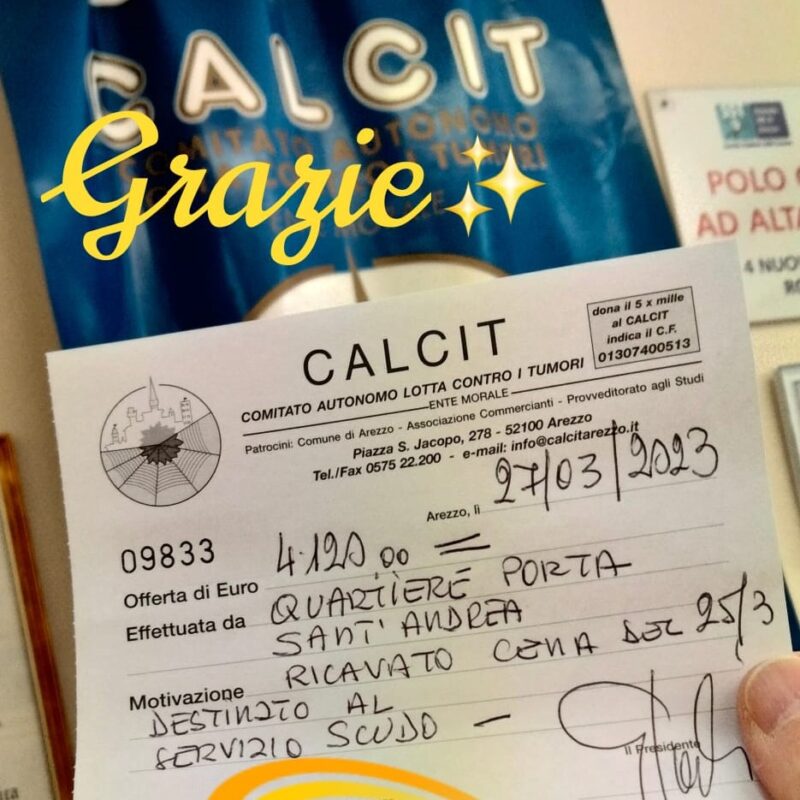 CALCIT
COMITATO AUTONOMO
TUMORI
Grazie
POLO
AD ALTA
4 NUO
CALCIT
COMITATO AUTONOMO LOTTA CONTRO I TUMORI
ENTE MORALE
Patrocini: Comune di Arezzo - Associazione Commercianti - Provveditorato agli Studi
Piazza S. Jacopo, 278 - 52100 Arezzo
Tel./Fax 0575 22.200 - e-mail: info@calcitarezzo.it
dona il 5 x mille
al CALCIT
indica il C.F.
01307400513
Arezzo, lì 27/03/2023
09833
Offerta di Euro 4.120,00 =
Effettuata da QUARTIERE PORTA
SANT'ANDREA
Motivazione RICAVATO CENA DEL 25/3
DESTINATO AL
SERVIZIO SCUDO -
Il Presidente